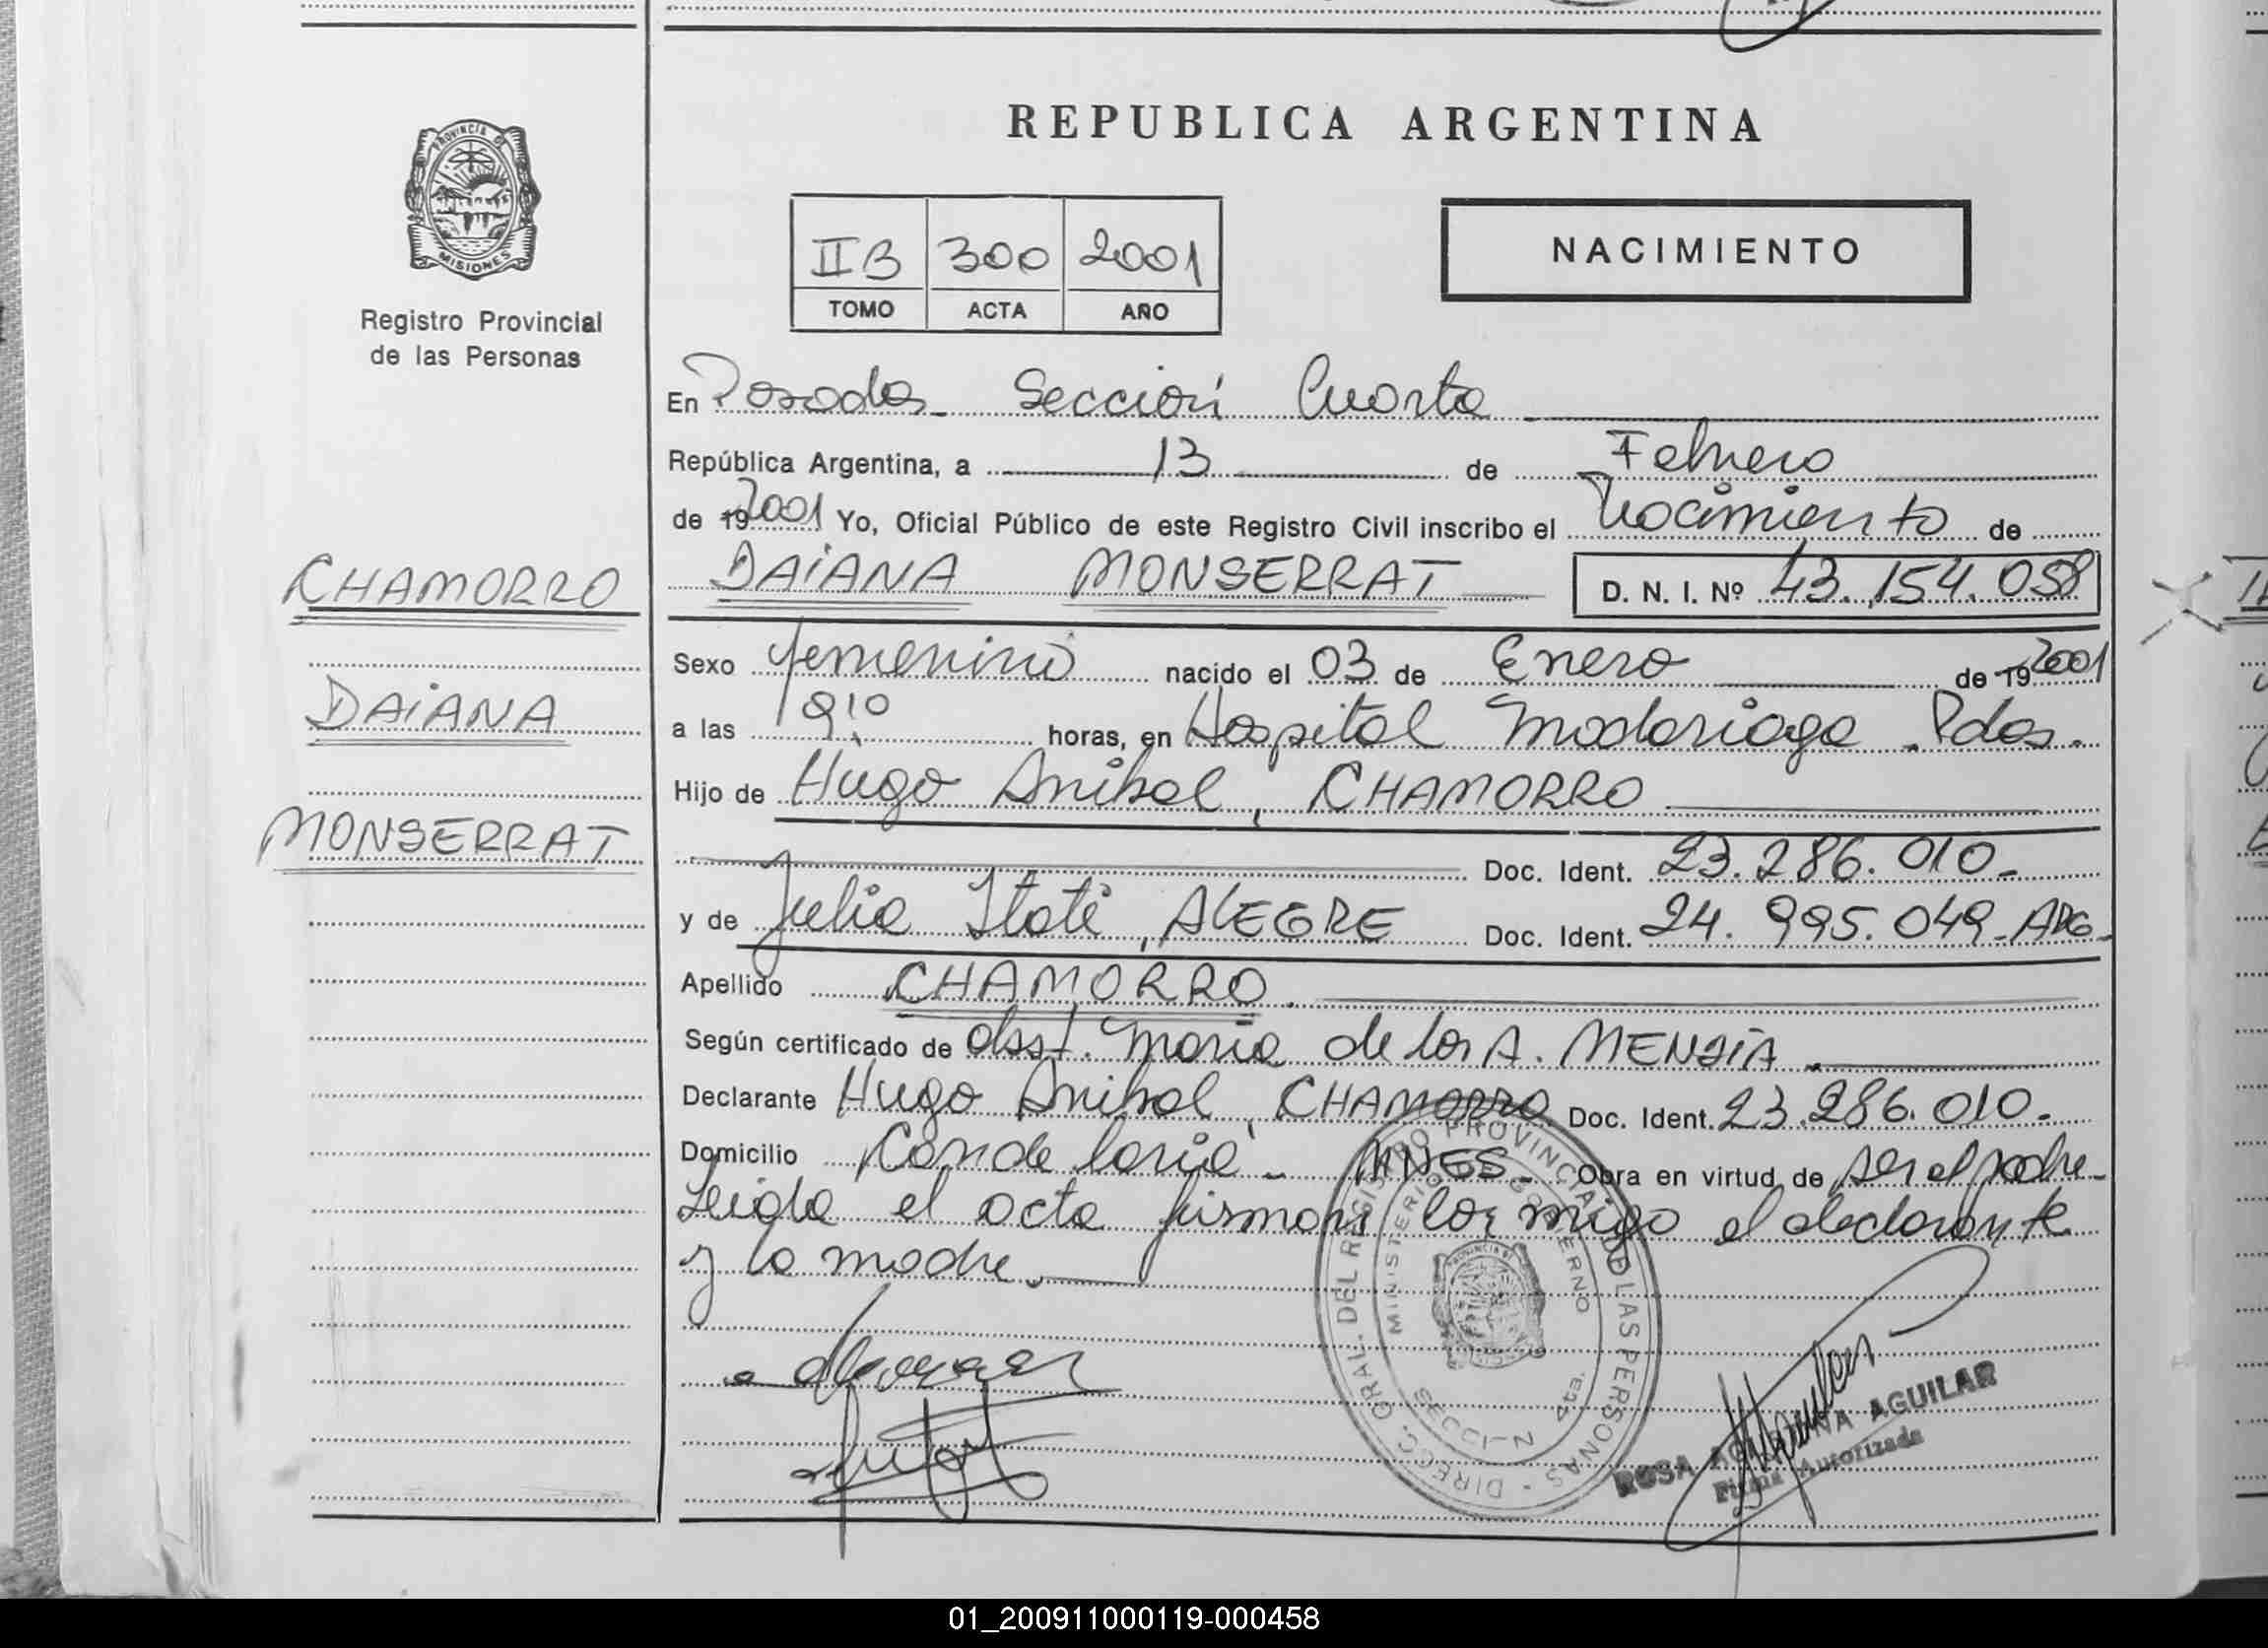 REPUBLICA ARGENTINA
PROVINCIA DE
MISIONES
Registro Provincial
de las Personas
II B 300 2001
TOMO ACTA AÑO
NACIMIENTO
En Posadas Sección Cuarta
República Argentina, a 13 de Febrero
de 19 2001 Yo, Oficial Público de este Registro Civil inscribo el Nacimiento de
DAIANA MONSERRAT D. N. I. Nº 43.154.058
CHAMORRO
DAIANA
MONSERRAT
Sexo femenino nacido el 03 de Enero de 19 2001
a las horas, en Hospital Madariaga. Pdas.
Hijo de Hugo Anibal, CHAMORRO
Doc. Ident. 23.286.010.
y de Julia Itatí, ALEGRE Doc. Ident. 24.995.049 - ARG.
Apellido CHAMORRO.
Según certificado de obst. Maria de los A. MENSIA.
Declarante Hugo Anibal, CHAMORRO Doc. Ident. 23.286.010.
Domicilio Candelaria - MNES. Obra en virtud de ser el padre.
Leida el acta firman conmigo el declarante
y la madre.
DIRECC. GRAL. DEL REGISTRO PROVINCIAL DE LAS PERSONAS
MINISTERIO DE GOBIERNO
SECCION 4ta.
ROSA AGUILAR
Firma Autorizada
01_200911000119-000458